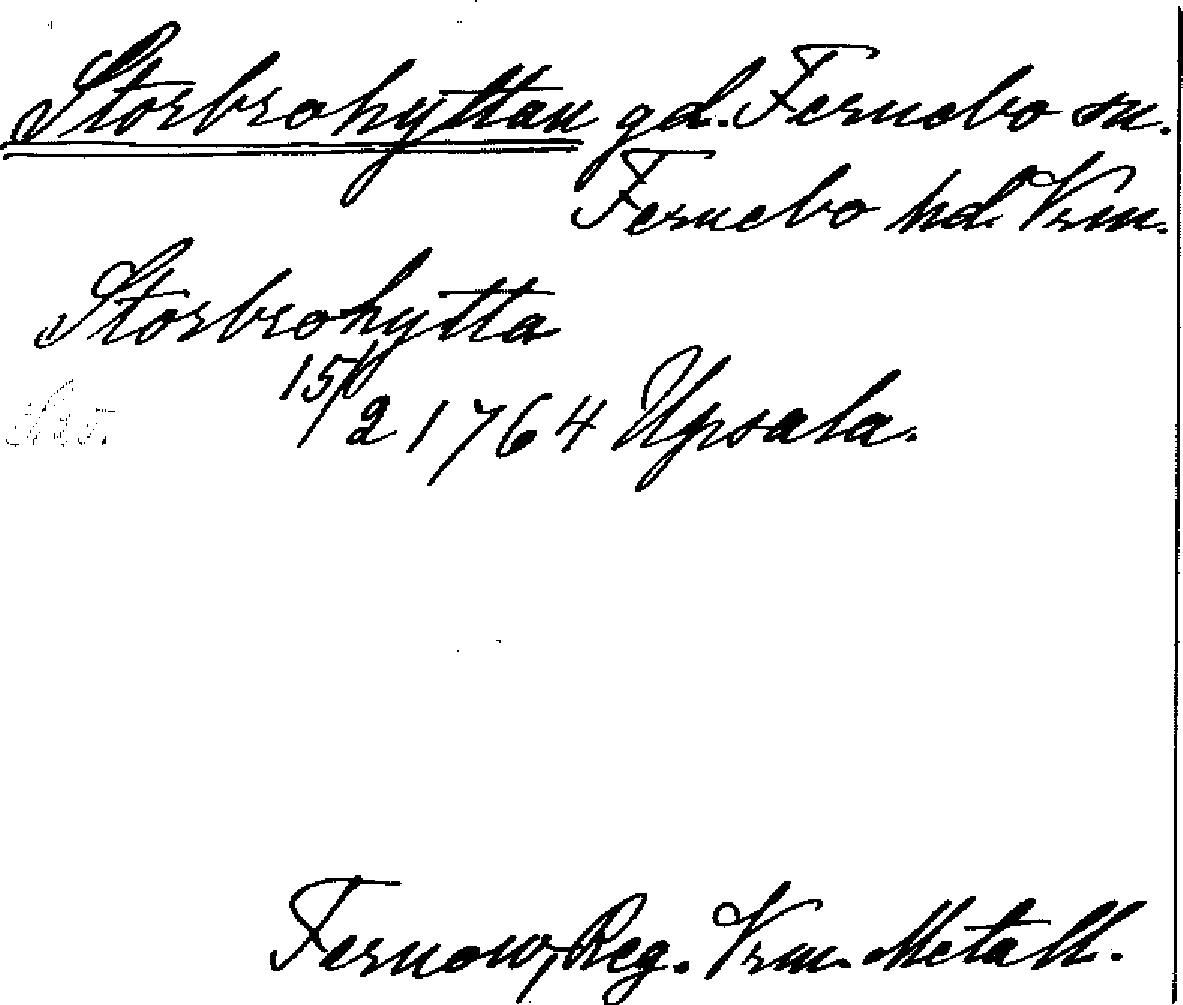 Storbrohyttan gd. Fernebo sn.
Fernebo hd. Vrm.
Storbrohytta
15/2 1764 Upsala.
Fernow, Reg. Vrm. Metall.